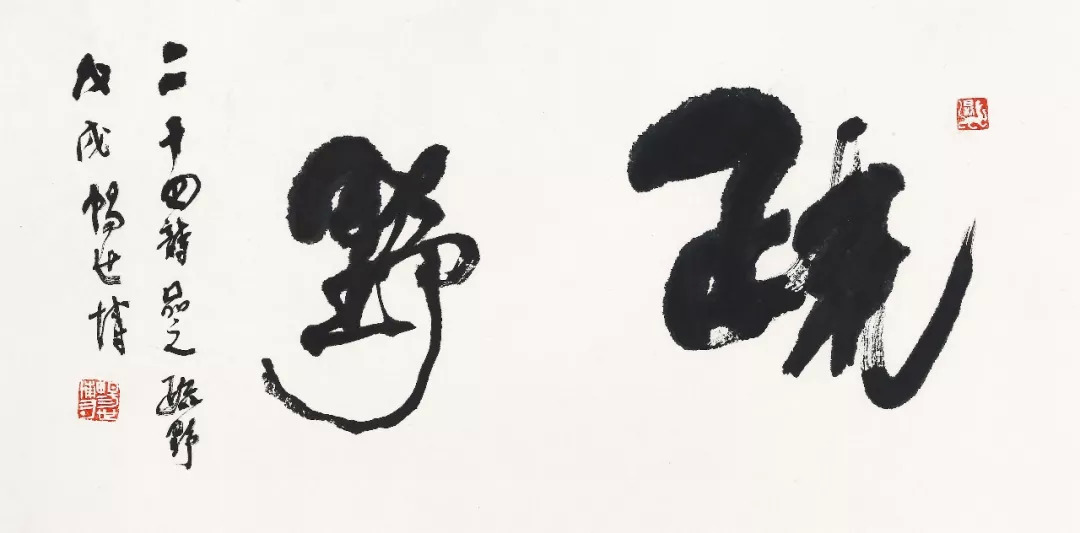 疏野
二十四詩品之疏野
戊戌暢世博